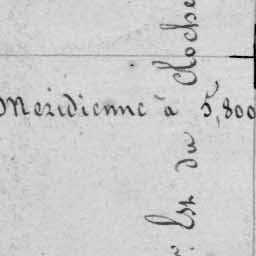 Meridienne à 5,800
Est du Cloche